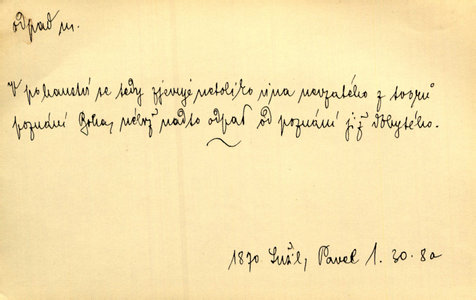 odpad m.
V pohanství se tedy zjevuje netoliko vina nevzatého z tvorů
poznání Boha, nebrž nadto odpad od poznání již dobytého.
1870 Sušil, Pavel 1. 30. 8a